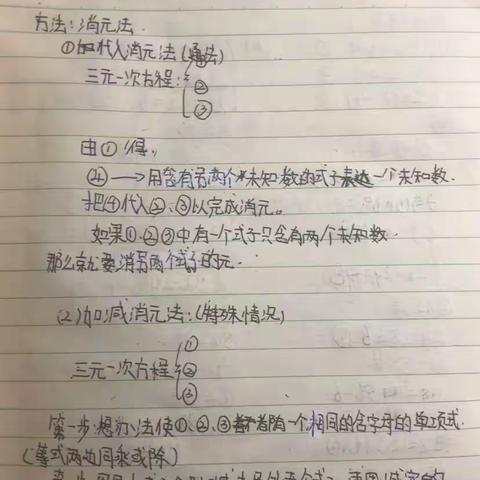 方法:消元法.
①代入消元法(通法)
三元一次方程:{①
②
③
由①得。
④→用含有另两个未知数的式子表达一个未知数.
把④代入②、③以完成消元。
如果①、②③中有一个式子只含有两个未知数.
那么就要消另两个式子的元.
(2)加减消元法:(特殊情况)
①
三元一次方程{②
③
第一步:想办法使①、②、③都有一个相同的含字母的单项式.
(等式两边同乘或除)